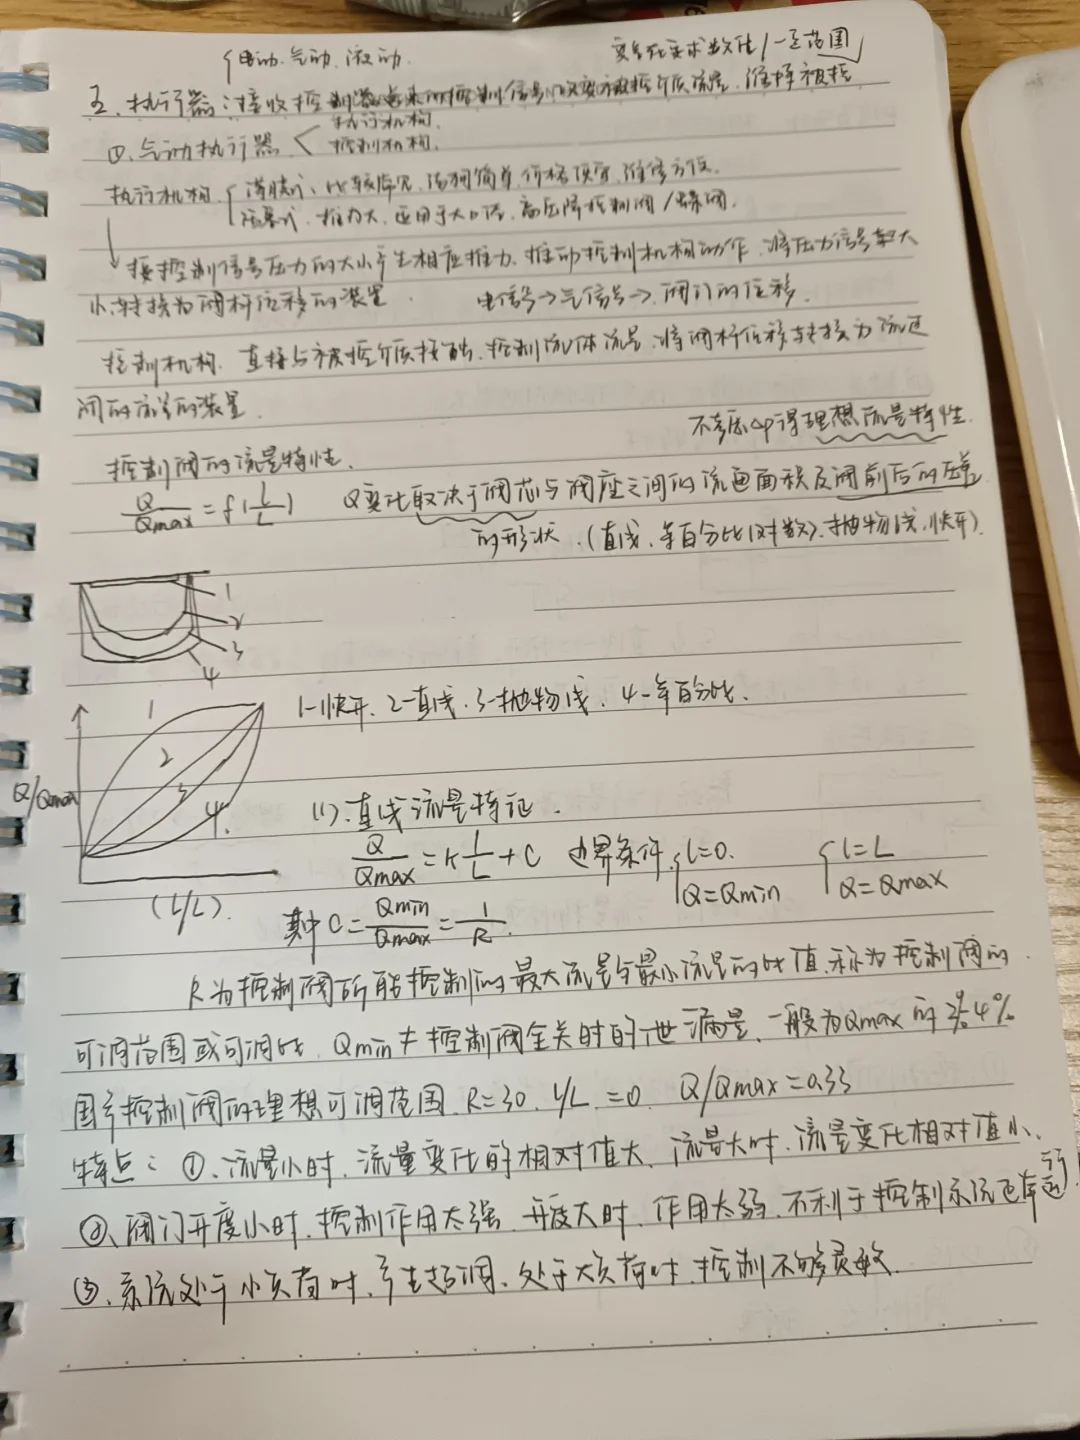 电动、气动、液动.
变量在要求数值/一定范围
五、执行器:接收控制器送来的控制信号,改变被控介质流量,维持被控
①、气动执行器 执行机构.
控制机构.
执行机构 薄膜式、比较常见,结构简单,价格便宜,维修方便.
活塞式、推力大,适用于大口径,高压降控制阀/蝶阀.
按控制信号压力的大小产生相应推力,推动控制机构动作,将压力信号的大
小转换为阀杆位移的装置. 电信号→气信号→阀门的位移.
控制机构. 直接与被控介质接触,控制流体流量,将阀杆位移转换为流过
阀的流量的装置.
不考虑Δp得理想流量特性.
控制阀的流量特性.
Q/Qmax=f(l/L) Q变化取决于阀芯与阀座之间的流通面积及阀前后的压差
的形状.(直线、等百分比(对数)、抛物线、快开).
1
2
3
4
1-快开、2-直线、3-抛物线、4-等百分比.
1
2
3
4.
Q/Qmax
(L/L).
(1).直线流量特征.
Q/Qmax=K l/L+C 边界条件 l=0. l=L
Q=Qmin Q=Qmax
其中C=Qmin/Qmax=1/R.
R为控制阀所能控制的最大流量与最小流量的比值,称为控制阀的
可调范围或可调比. Qmin≠控制阀全关时的泄漏量,一般为Qmax的2~4%
国产控制阀的理想可调范围 R=30. l/L=0 Q/Qmax=0.33
特点: ①、流量小时,流量变化的相对值大,流量大时,流量变化相对值小、
②、阀门开度小时,控制作用太强,开度大时,作用太弱,不利于控制系统正常运行
③、系统处于小负荷时,产生超调,处于大负荷时,控制不够灵敏.